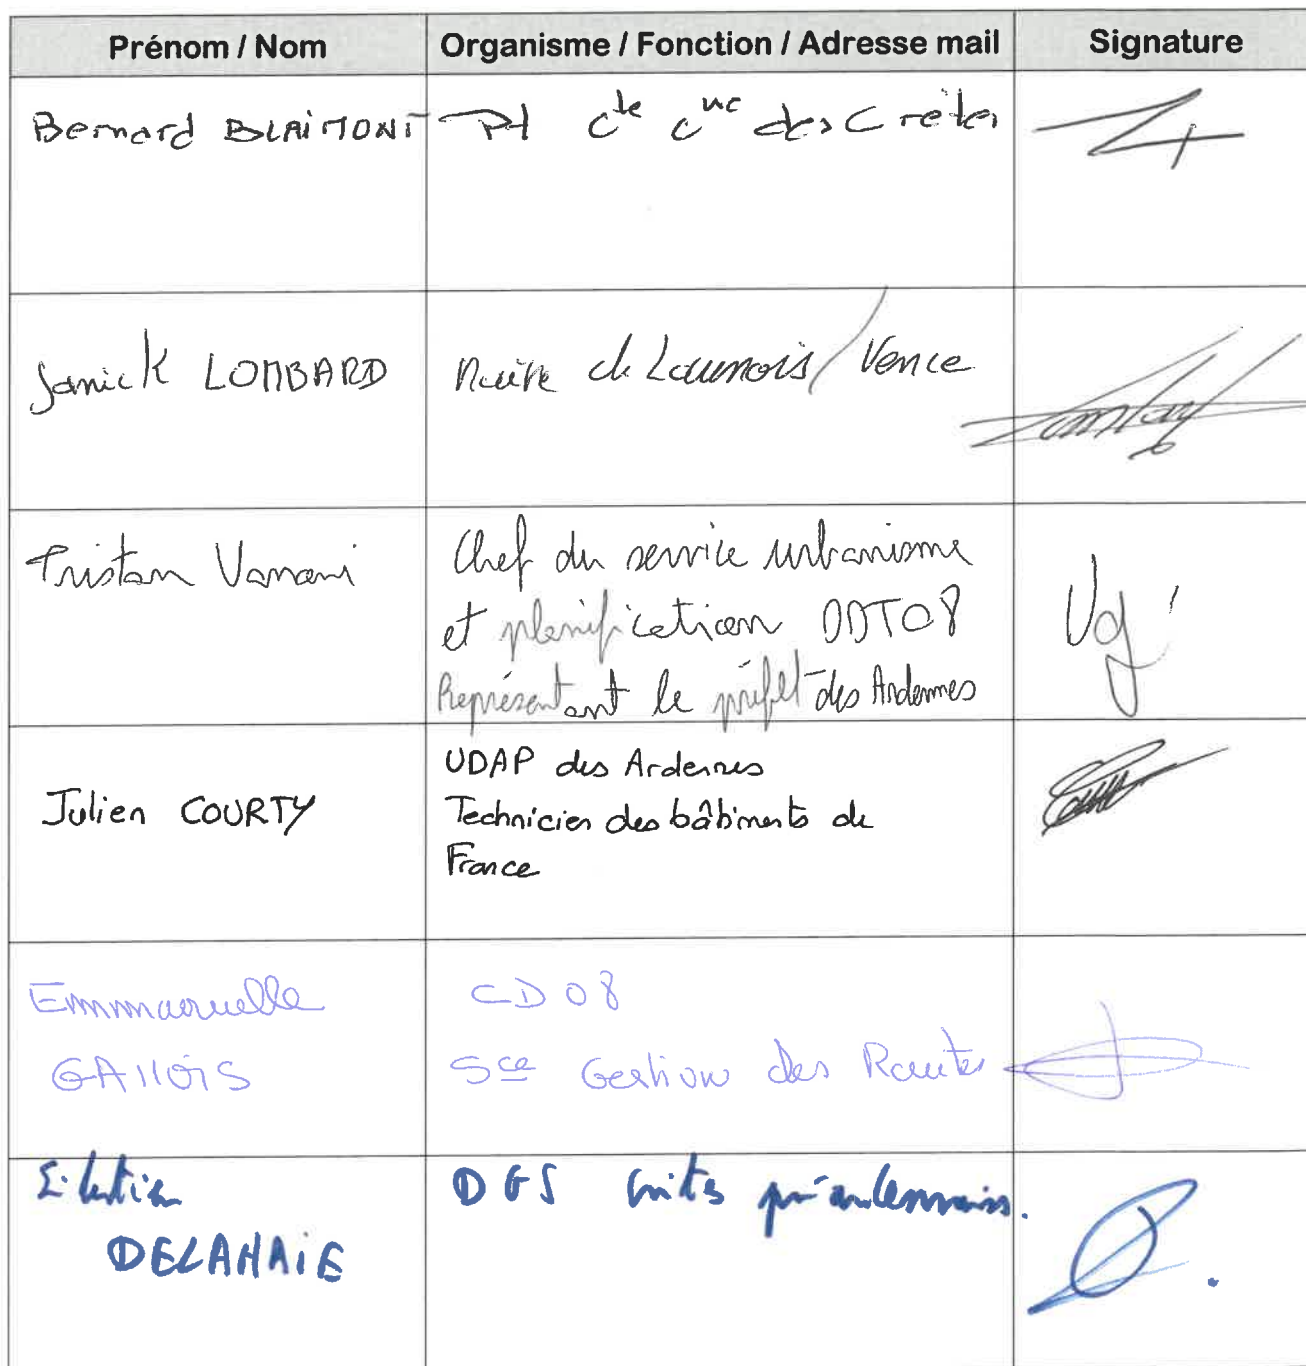 Prénom / Nom
Organisme / Fonction / Adresse mail
Signature
Bernard BLAIMONT
Pt Cte Cne des Crêtes
Janick LOMBARD
Maire de Launois / Vence
Tristan
Chef du service urbanisme
et planification DDT08
Représentant le préfet des Ardennes
Julien COURTY
UDAP des Ardennes
Technicien des bâtiments de
France
Emmanuelle
GALLOIS
CD08
Sce Gestion des Routes
DELAHAIE
DGS Crêtes préardennaises.